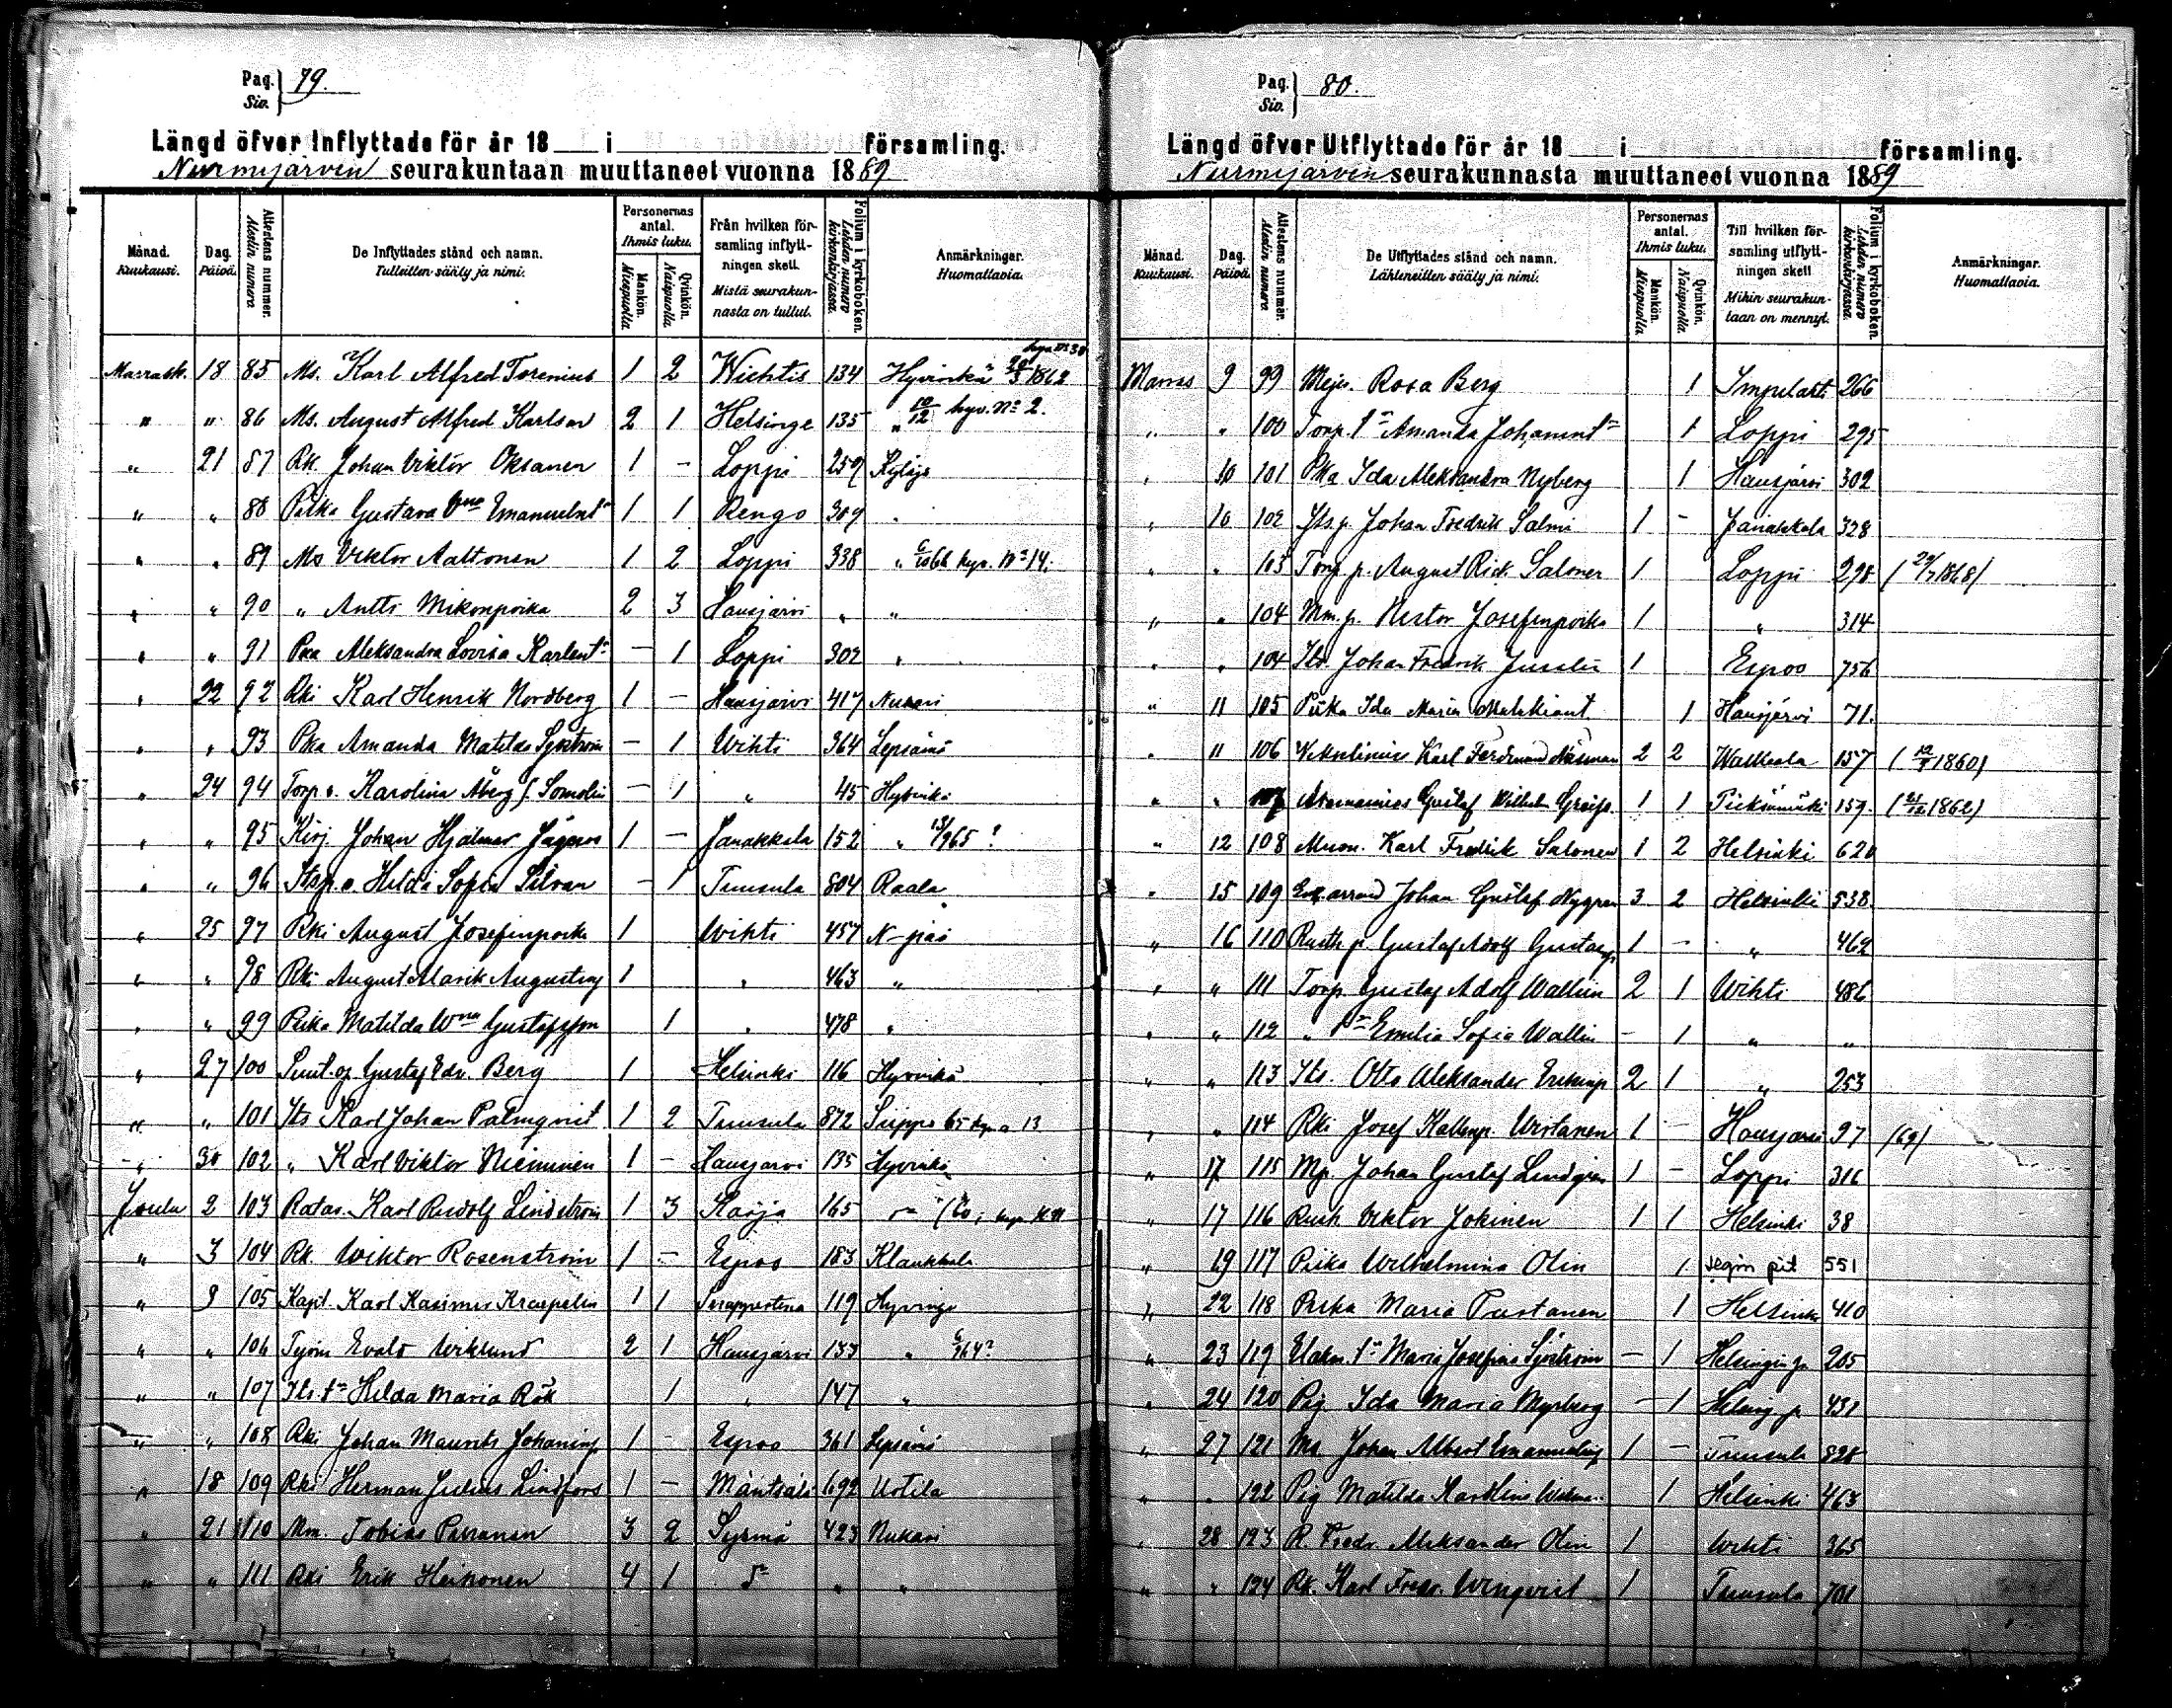 Pag. Siv. } 79.
Längd öfver Inflyttade för år 18 i församling.
Nurmijärven seurakuntaan muuttaneet vuonna 1889
Månad. Kuukausi. Dag. Päivä. Attestens nummer. Alestin numero De Inflyttades stånd och namn. Tulleitten sääty ja nimi. Personernas antal. Ihmis luku. Mankön. Miespuolia Qvinkön. Naispuolia Från hvilken församling inflyttningen skett. Mistä seurakunnasta on tullut. Folium i kyrkoboken. Lehden numero kirkonkirjassa. Anmärkningar. Huomattavia.
Marrask. 18 85 Ms. Karl Alfred Torenius 1 2 Wichtis 134 Hyvinkä 1862
" " 86 Ms. August Alfred Karlson 2 1 Helsinge 135 " 10/12 hyv. No 2.
" 21 87 Rk. Johan Viktor Oksanen 1 - Loppi 259 Kytäjä
" " 88 Piika Gustava Emanuelnt 1 1 Rengo 309 "
" " 89 Ms Viktor Aaltonen 1 2 Loppi 338 " No 14.
" " 90 " Antti Mikonpoika 2 3 Hausjärvi " "
" " 91 Pka Aleksandra Lovisa Karlent - 1 Loppi 302 "
" 22 92 Rki Karl Henrik Nordberg 1 - Hausjärvi 417 Nukari
" " 93 Pka Amanda Matilda Sjöström - 1 Wihti 364 Lepsämä
" 24 94 Torp. v. Karolina Åberg - 1 " 45 Hyvinkä
" " 95 Kirj. Johan Hjalmar 1 - Janakkala 152 "
" " 96 Itsp. v. Hilda Sofia Silvan - 1 Tuusula 804 Raala
" 25 97 Rki August Josefinpoika 1 Wihti 457 N-pää
" " 98 Rki August Mavrik Augustinp 1 " 463 "
" " 99 Piika Matilda Wna Gustafsson 1 " 478 "
" 27 100 Gustaf Edv. Berg 1 Helsinki 116 Hyvinkä
" " 101 Its Karl Johan Palmqvist 1 2 Tuusula 872 13
" 30 102 " Karl Viktor Nieminen 1 - Hausjärvi 135 Hyvinkä
Joulu 2 103 Ratav. Karl Rudolf Lindström 1 3 Karja 165
" 3 104 Rk. Wiktor Rosenström 1 - Espoo 183 Klaukkala
" 9 105 Kapt. Karl Kasimir 1 1 119 Hyvinge
" " 106 Työm Evald Wiklund 2 1 Hausjärvi 133 "
" " 107 Its. Hilda Maria 1 " 147 "
" " 108 Rki Johan Maurits Johaninp 1 - Espoo 361 Lepsämä
" 18 109 Rki Herman Julius Lindfors 1 - Mäntsälä 692 Uotila
" 21 110 Mm. Tobias 3 2 Sysmä 423 Nukari
" " 111 Rki Erik Heikonen 4 1 " "
Pag. Siv. } 80.
Längd öfver Utflyttade för år 18 i församling.
Nurmijärven seurakunnasta muuttaneet vuonna 1889
Månad. Kuukausi. Dag. Päivä. Attestens nummer. Alestin numero De Utflyttades stånd och namn. Lähteneitten sääty ja nimi. Personernas antal. Ihmis luku. Mankön. Miespuolia Qvinkön. Naispuolia Till hvilken församling utflyttningen skett Mihin seurakuntaan on mennyt. Folium i kyrkoboken. Lehden numero kirkonkirjassa. Anmärkningar. Huomattavia.
Marras 9 99 Mejer. Rosa Berg 1 Impilahti 266
" " 100 Torp. Amanda Johannt 1 Loppi 295
" 10 101 Pka Ida Aleksandra Nyberg 1 Hausjärvi 302
" 10 102 Its. p. Johan Fredrik Salmi 1 - Janakkala 328
" " 103 Torp. p. August Salonen 1 Loppi 298 1868
" " 104 Mm. p. Nestor Josefinpoika 1 " 314
" " 104 Its. Johan Fredrik 1 Espoo 756
" 11 105 Piika Ida Maria 1 Hausjärvi 71.
" 11 106 Karl Ferdinand Näsman 2 2 Walkeala 157 1860)
" " 107 Gustaf Wilhelm 1 1 Pieksämäki 159. 1862)
" 12 108 Muon. Karl Fredrik Salonen 1 2 Helsinki 620
" 15 109 Johan Gustaf Nygren 3 2 Helsinki 538.
" 16 110 Rusth p. Gustaf Adolf 1 - " 462
" " 111 Torp. Gustaf Adolf Wallin 2 1 Wihti 486
" " 112 " Emilia Sofia Wallin - 1 " "
" " 113 Its. Otto Aleksander Erikinp 2 1 " 253
" " 114 Rki Josef Kallenp. Virtanen 1 - Hausjärvi 97 (69)
" 17 115 Mp. Johan Gustaf Lindgren 1 - Loppi 316
" 17 116 Rusth Viktor Jokinen 1 1 Helsinki 38
" 19 117 Piika Wilhelmina Olin 1 551
" 22 118 Piika Maria 1 Helsinki 410
" 23 119 Maria Josefina Sjöström - 1 Helsingin p. 205
" 24 120 Pig Ida Maria Myrberg - 1 Helsing p. 431
" 27 121 Ms. Johan Albert Emanuelinp 1 - Tuusula 828
" " 122 Pig Matilda Karolina 1 Helsinki 463
" 28 123 R. Fredr. Aleksander Olin 1 Wihti 365
" " 124 Rk. Karl Fredr. Winqvist 1 Tuusula 701